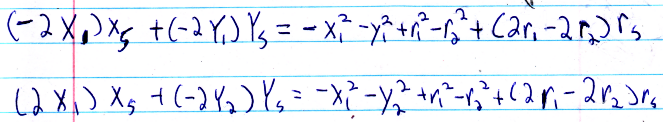 (-2X₁)X₅ + (-2Y₁)Y₅ = -x₁² - y₁² + r₁² - r₂² + (2r₁ - 2r₂)r₅
(2X₁)X₅ + (-2Y₂)Y₅ = -X₁² - Y₂² + r₁² - r₂² + (2r₁ - 2r₂)r₅